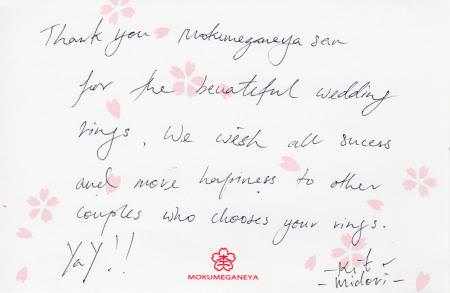 Thank you Mokumeganeya san
for the beuateful wedding
rings. We wish all sucess
and more hapiness to other
couples who chooses your rings.
Yay!!
- Kit &
- Midori -
MOKUMEGANEYA